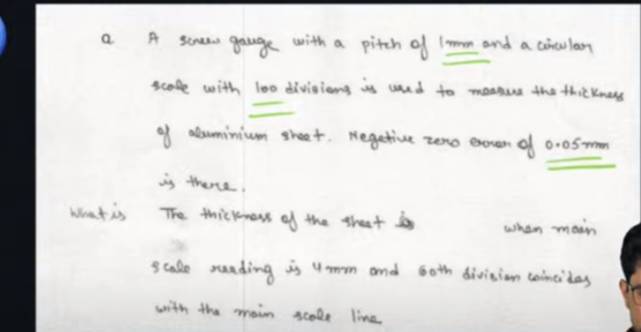 Q A screw gauge with a pitch of 1mm and a circular
scale with 100 divisions is used to measure the thickness
of aluminium sheet. Negetive zero error of 0.05mm
is there.
What is The thickness of the sheet is when main
scale reading is 4mm and 60th division coincides
with the main scale line